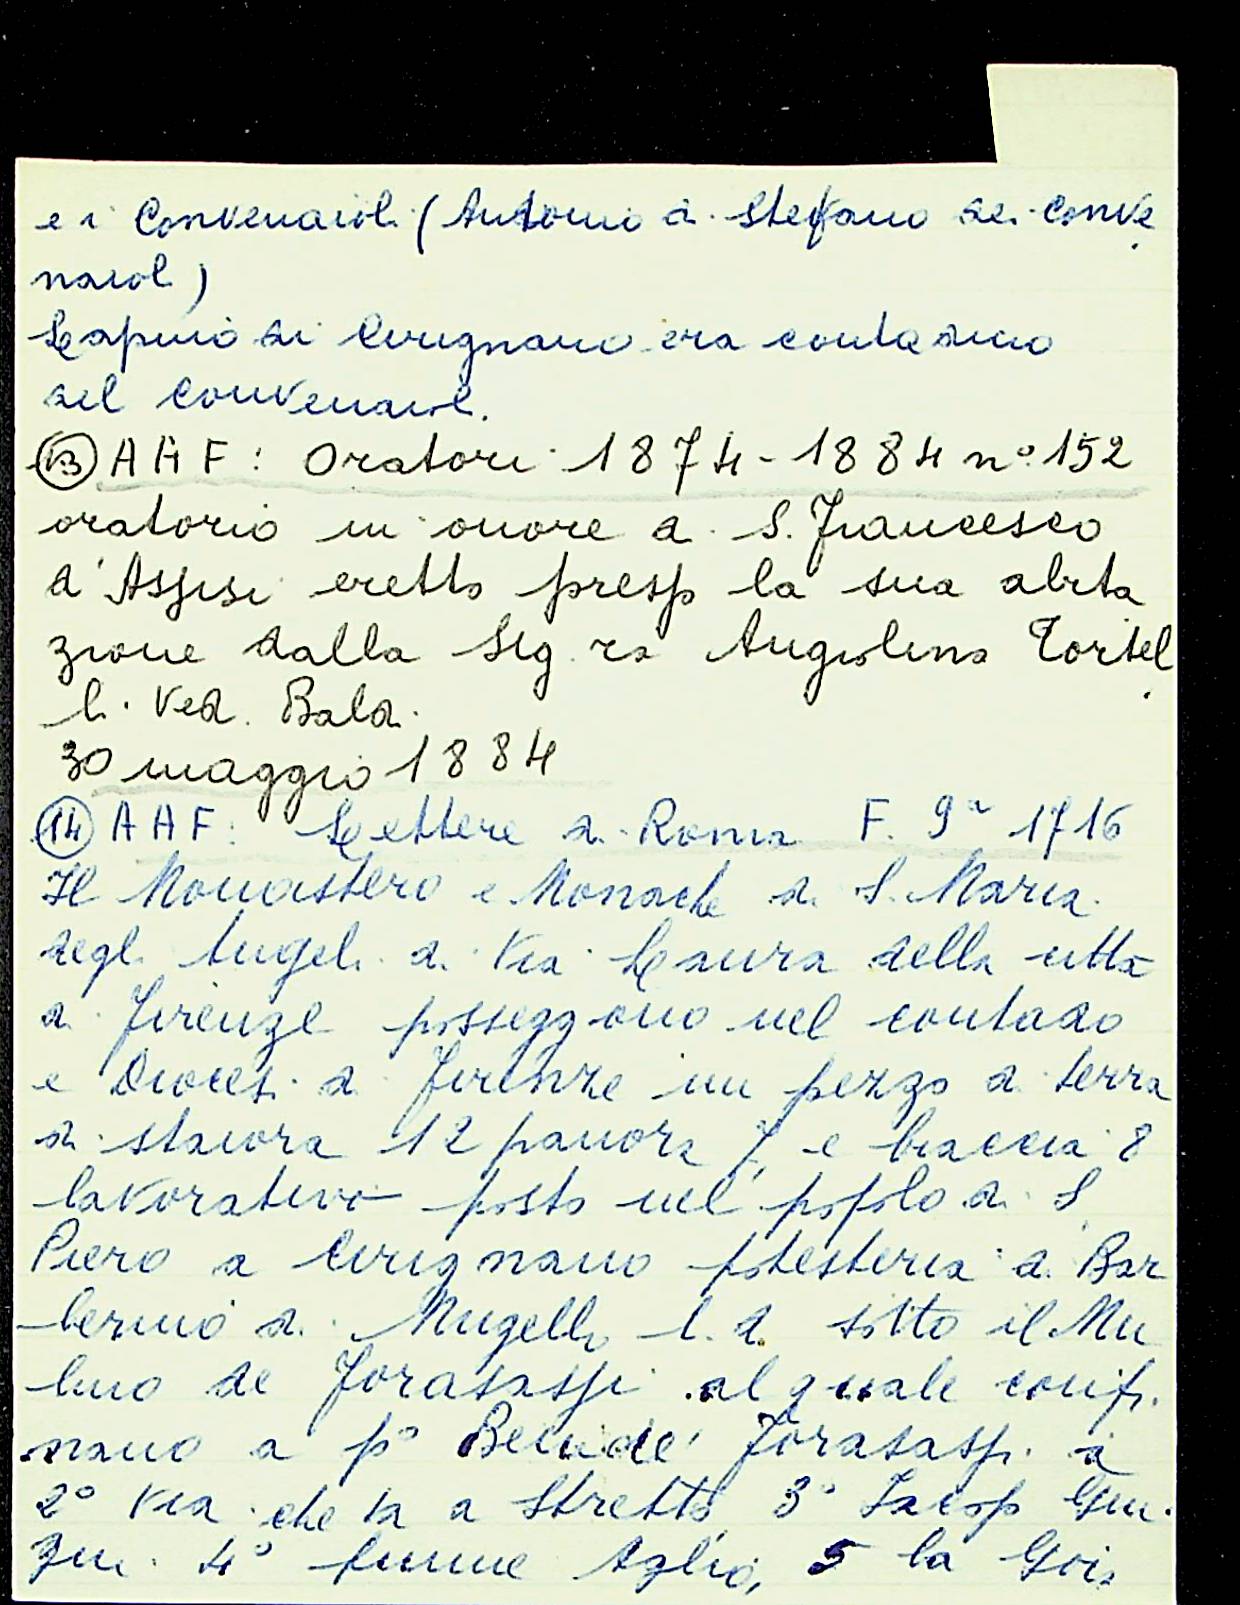 e i Convenaioli (Antonio di Stefano dei Conve
naioli)
Lapino di Cirignano era contadino
del Convenaioli.
(13) AAF: Oratori 1874-1884 n° 152
oratorio in onore di S. Francesco
d'Assisi eretto presso la sua abita
zione dalla Sig.ra Angiolina Tortel
li Ved. Baldi
30 maggio 1884
(14) AAF: Lettere di Roma F. 9a 1716
Il Monastero e Monache di S. Maria
degli Angeli di Via Laura della città
di Firenze posseggono nel contado
e Diocesi di Firenze un pezzo di terra
di staiora 12 panora 7, e braccia 8
lavorativo posto nel popolo di S.
Piero a Cirignano potesteria di Bar
berino di Mugello l.d. sotto il Mu
lino de Forasassi al quale confi
nano a p° Beni de' Forasassi a
2° via che va a Stretto, 3° Jacopo
4° fiume Aglio, 5 la